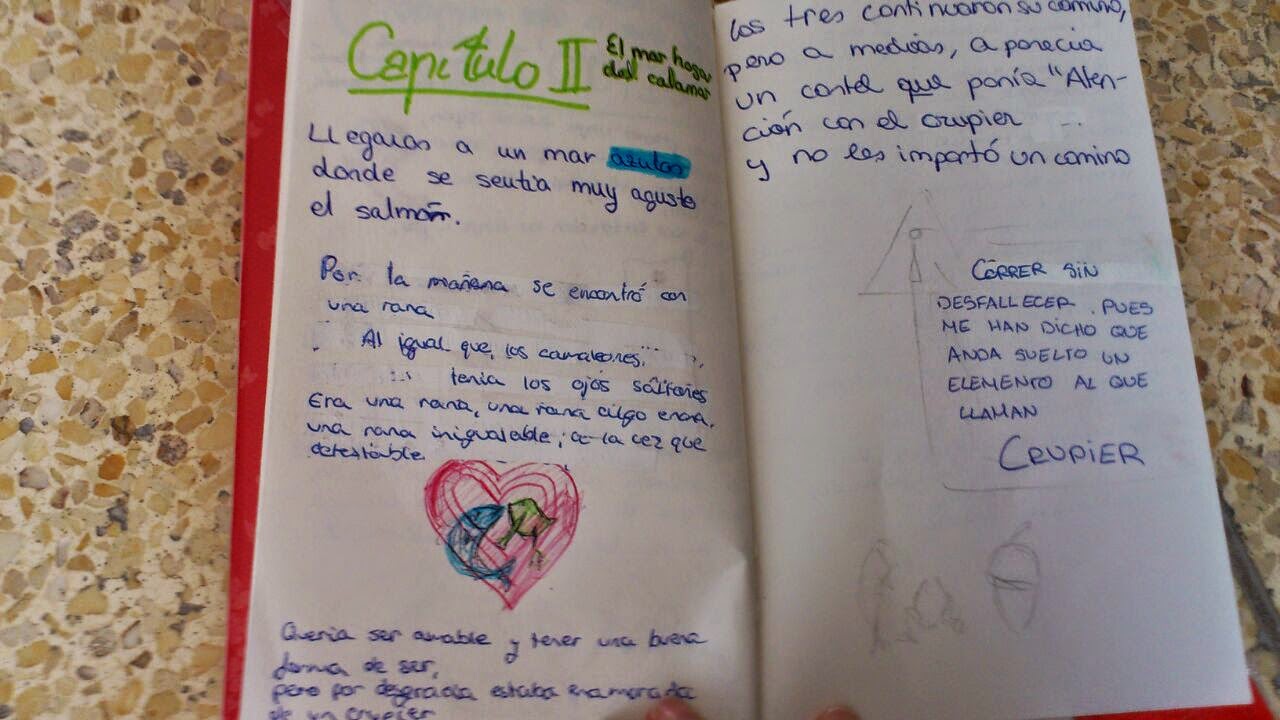 Capítulo II El mar hogar
del calamar
Llegaron a un mar azulón
donde se sentia muy agusto
el salmón.
Por la mañana se encontró con
una rana
Al igual que los camaleones,
tenia los ojos saltones
Era una rana, una rana algo enana,
una rana inigualable, a la vez que
detestable
Queria ser amable y tener una buena
forma de ser,
pero por desgracia estaba enamorada
de un crupier
Los tres continuaron su camino,
pero a medias, a parecia
un cartel que ponía "Aten-
ción con el crupier
y no les importó un comino
CORRER SIN
DESFALLECER. PUES
ME HAN DICHO QUE
ANDA SUELTO UN
ELEMENTO AL QUE
LLAMAN
CRUPIER